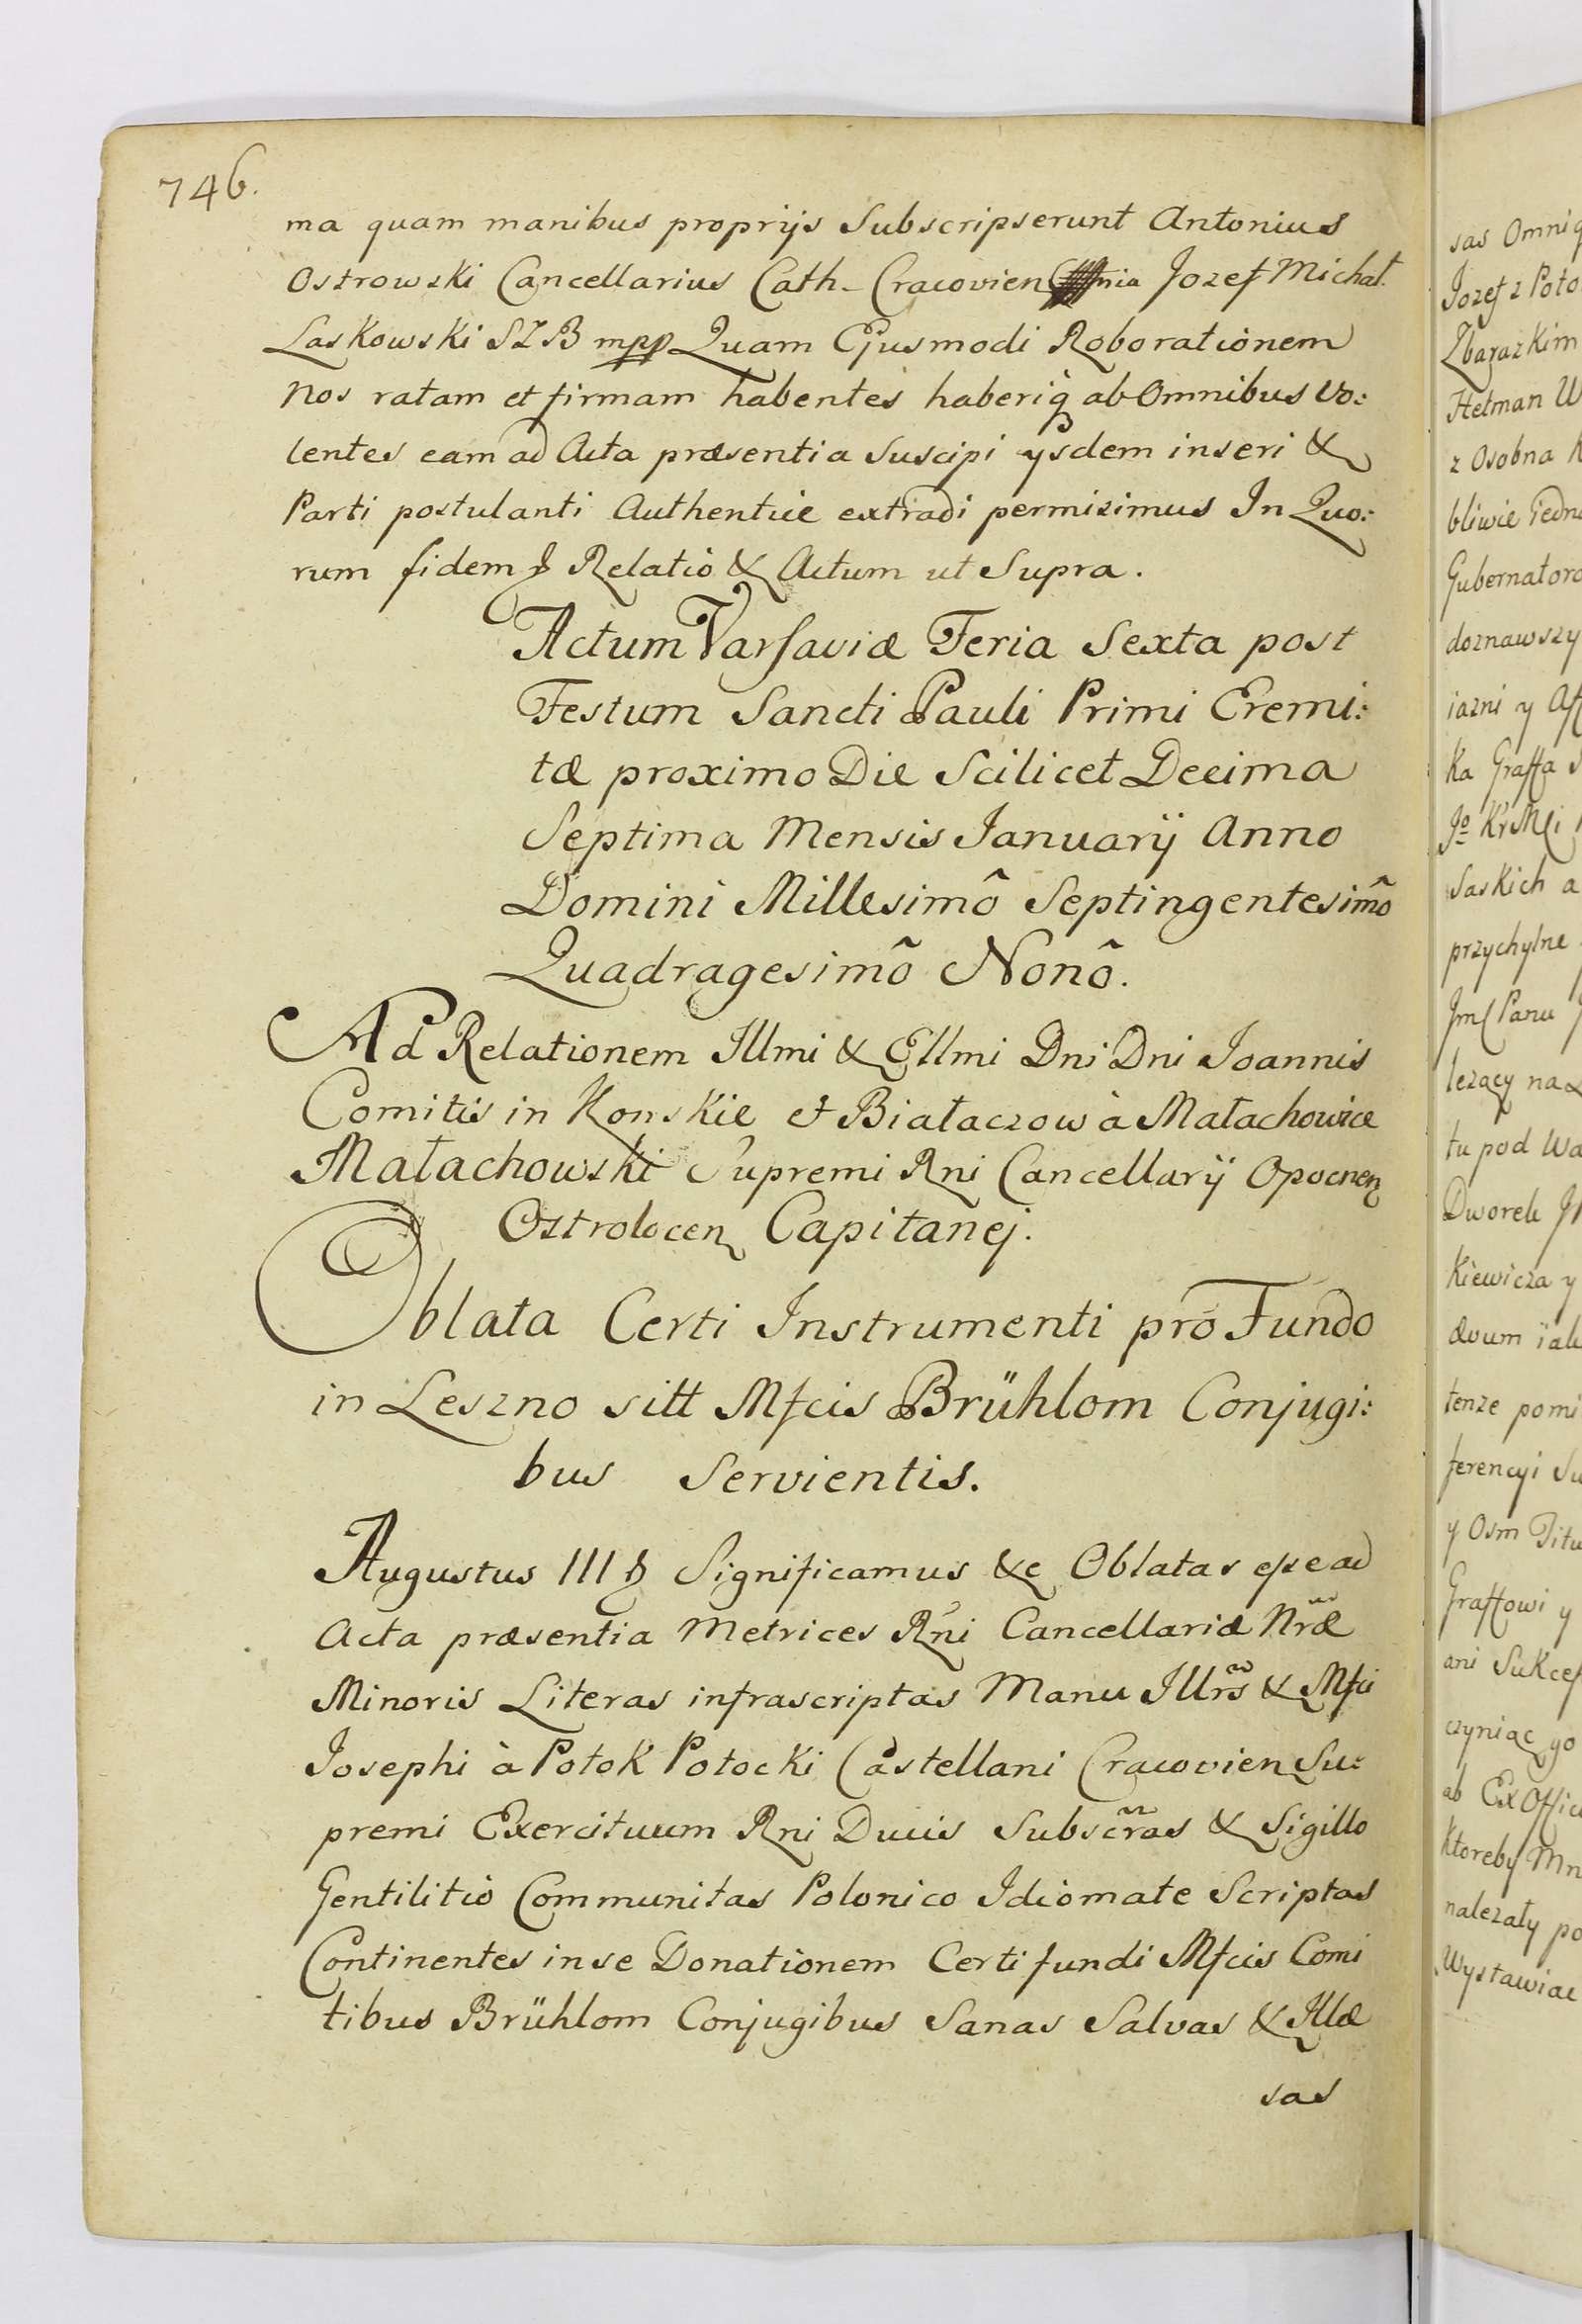 746.
ma quam manibus proprijs Subscripserunt Antonius
Ostrowski Cancellarius Cath- Cracovien Jozef Michał
Laskowski SZB mpp Quam Ejusmodi Roborationem
Nos ratam et firmam habentes haberiq ab Omnibus vo:
lentes eam ad Acta præsentia Suscipi ysdem inseri &
Parti postulanti Authentice extradi permisimus In Quo:
rum fidem Relatio & Actum ut Supra.
Actum Varsaviæ Feria Sexta post
Festum Sancti Pauli Primi Eremi:
tæ proximo Die Scilicet Decima
Septima Mensis Januarij Anno
Domini Millesimô Septingentesimô
Quadragesimô Nonô.
Ad Relationem Illmi & Ellmi Dni Dni Joannis
Comitis in Konskie et Białaczow à Małachowice
Małachowski Supremi Rni Cancellarij Opocnen
Ostrolecen Capitanej.
Oblata Certi Instrumenti pro Fundo
in Leszno sitt Mfcis Brühlom Conjugi:
bus Servientis.
Augustus III Significamus &c Oblatas esse ad
Acta præsentia Metrices Rni Cancellariæ Nræ
Minoris Literas infrascriptas Manu Illrs & Mfci
Josephi à Potok Potocki Castellani Cracovien Su:
premi Exercituum Rni Ducis Subscras & Sigillo
Gentilitio Communitas Polonico Idiomate Scriptas
Continentes in se Donationem Certi fundi Mfcis Comi
tibus Brühlom Conjugibus Sanas Salvas & Illæ
sas
sas Omniq
Jozef z Poto
Zbarazkim
Hetman W
z Osobna
bliwie iedn
Gubernator
doznawszy
iazni y Aff
ka Graffa
Jo KrMci
Saskich a
przychylne
Jmc Panu
lezący na
tu pod Wa
Dworek
Kiewicza y
ævum iak
tenze pomi
ferencyi Su
y Osm Titu
Graffowi y
ani Sukces
czyniąc go
ab Ex Offic
ktoreby Mn
nalezały po
Wystawiac